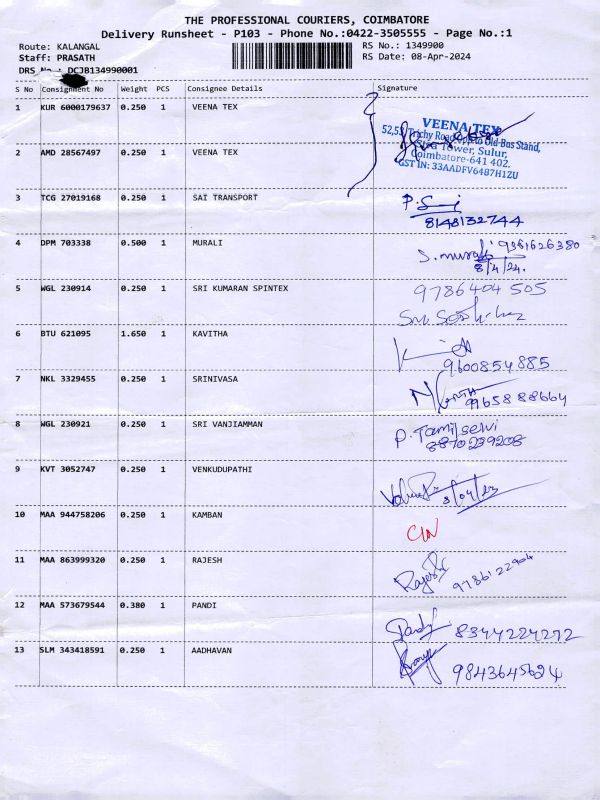 THE PROFESSIONAL COURIERS, COIMBATORE
Delivery Runsheet - P103 - Phone No.:0422-3505555 - Page No.:1
Route: KALANGAL RS No.: 1349900
Staff: PRASATH RS Date: 08-Apr-2024
DRS No.: DCJB134990001
S No Consignment No Weight PCS Consignee Details Signature
1 KUR 6000179637 0.250 1 VEENA TEX
VEENA TEX
52,53, Trichy Road, Opp to Old Bus Stand,
Tower, Sulur,
Coimbatore-641 402.
GST IN: 33AADFV6487H1ZU
2 AMD 28567497 0.250 1 VEENA TEX
3 TCG 27019168 0.250 1 SAI TRANSPORT
8148132744
4 DPM 703338 0.500 1 MURALI S.murali 9361626380
8/4/24.
5 WGL 230914 0.250 1 SRI KUMARAN SPINTEX 9786404505
6 BTU 621095 1.650 1 KAVITHA
9600854885
7 NKL 3329455 0.250 1 SRINIVASA
9965888664
8 WGL 230921 0.250 1 SRI VANJIAMMAN P. Tamilselvi
8870239208
9 KVT 3052747 0.250 1 VENKUDUPATHI
10 MAA 944758206 0.250 1 KAMBAN
11 MAA 863999320 0.250 1 RAJESH Rajesh 9786122904
12 MAA 573679544 0.380 1 PANDI Pandi 8344224272
13 SLM 343418591 0.250 1 AADHAVAN
9843645624